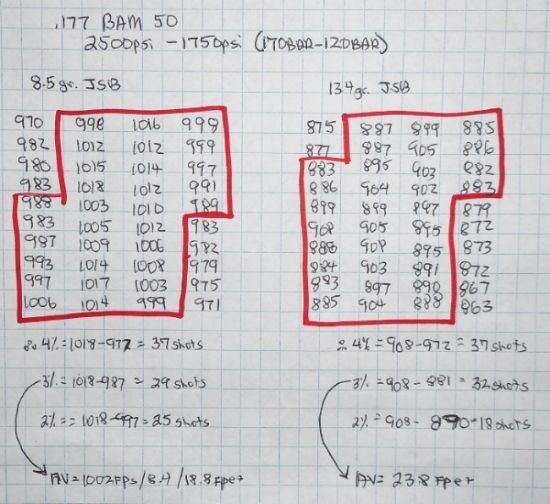 .177 BAM 50
2500psi - 1750psi (170BAR-120BAR)
8.5gr. JSB 13.4gr. JSB
970 998 1016 998 875 887 899 885
982 1012 1012 999 877 887 905 886
980 1015 1014 997 883 895 903 882
983 1018 1012 991 886 904 902 883
988 1003 1010 989 899 899 897 879
983 1005 1012 983 908 905 895 872
987 1009 1006 982 888 908 895 873
993 1014 1008 979 884 903 891 872
997 1017 1003 975 893 897 890 867
1006 1014 999 971 885 904 888 863
4% = 1018-977 = 37 shots 4% = 908-972 = 37 shots
3% = 1018-987 = 29 shots 3% = 908-881 = 32 shots
2% = = 1018-997 = 25 shots 2% = 908-890 = 18 shots
AV = 1002FPS / 8.4 / 18.8 Fpe+ AV = 23.8 Fpe+